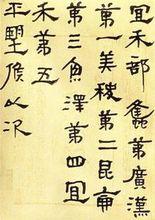 宜禾部蠭第廣漢
第一美稷第二昆侖
第三魚澤第四宜
禾第五
平望候以次